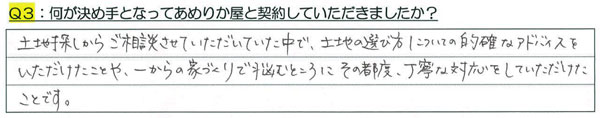 Q3：何が決め手となってあめりか屋と契約していただきましたか？
土地探しからご相談させていただいていた中で、土地の選び方についての的確なアドバイスを
いただけたことや、一からの家づくりで悩むところにその都度、丁寧な対応をしていただけた
ことです。